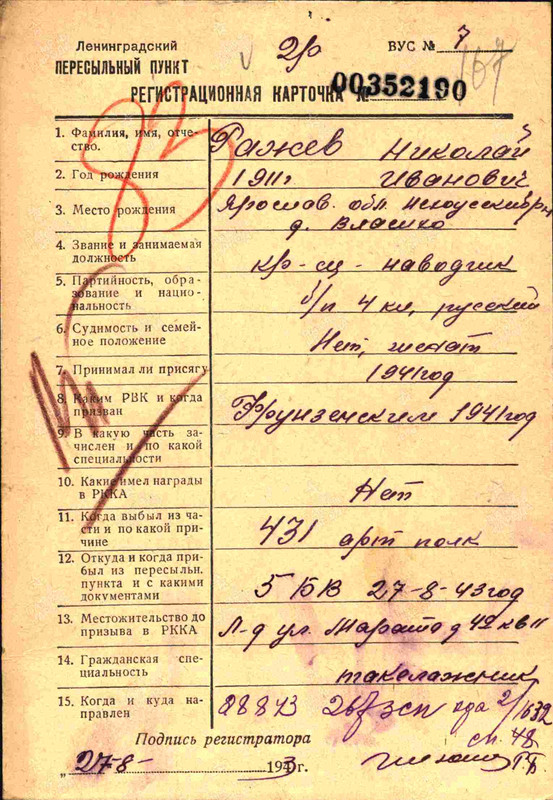 Ленинградский
ПЕРЕСЫЛЬНЫЙ ПУНКТ
2р
ВУС № 7
167
РЕГИСТРАЦИОННАЯ КАРТОЧКА № 00352190
83
1. Фамилия, имя, отче-
ство.
Гажев Николай
Иванович
2. Год рождения
1911г
3. Место рождения
Ярослав. обл.
д. Власко
4. Звание и занимаемая
должность
кр-ец - наводчик
5. Партийность, обра-
зование и нацио-
нальность
б/п 4 кл, русский
6. Судимость и семей-
ное положение
Нет, женат
7. Принимал ли присягу
1941год
8. Каким РВК и когда
призван
Фрунзенским 1941год
9. В какую часть за-
числен и по какой
специальности
10. Какие имел награды
в РККА
Нет
11. Когда выбыл из ча-
сти и по какой при-
чине
431 арт полк
12. Откуда и когда при-
был из пересыльн.
пункта и с какими
документами
5 БВ 27-8-43год
13. Местожительство до
призыва в РККА
Л-д ул. Марата д 42 кв 11
14. Гражданская спе-
циальность
такалажник
15. Когда и куда на-
правлен
28843 зсп
сп. 48
Подпись регистратора
„27-8- 1943г.